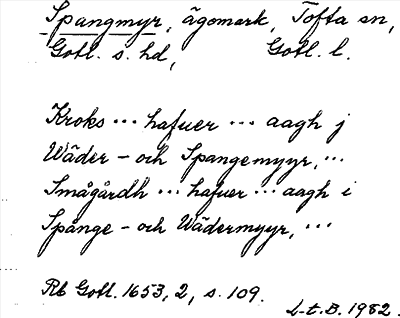 Spangmyr, ägomark, Tofta sn,
Gotl. s. hd, Gotl. l.
Kroks ... hafuer ... aagh j
Wäder - och Spangemyyr, ...
Smågårdh ... hafuer ... aagh i
Spånge - och Wädermyyr, ...
Rb Gotl. 1653, 2, s. 109.
L-t. B. 1982.